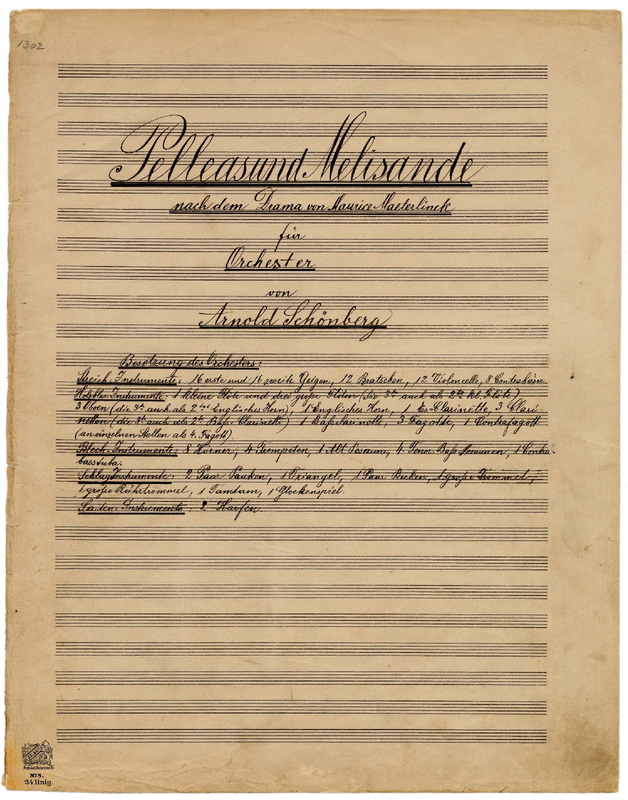 1302
Pelleas und Melisande
nach dem Drama von Maurice Maeterlinck
für
Orchester
von
Arnold Schönberg
Besetzung des Orchesters:
Streich-Instrumente: 16 erste und 16 zweite Geigen, 12 Bratschen, 12 Violoncelle, 8 Contrabässe
Holzblas-Instrumente: 1 kleine Flöte und drei große Flöten (die 3te auch als 2te kl. Flöte)
3 Oboen (die 3te auch als 2tes Englisches Horn), 1 Englisches Horn, 1 Es-Clarinette, 3 Clari-
netten (die 3te auch als 2te Baß-Clarinette) 1 Baßclarinette, 3 Fagotte, 1 Contrafagott
(an einzelnen Stellen als 4. Fagott)
Blech-Instrumente: 8 Hörner, 4 Trompeten, 1 Alt Posaune, 4 Tenor-Baß-Posaunen, 1 Contra-
basstuba.
Schlaginstrumente: 2 Paar Pauken, 1 Triangel, 1 Paar Becken, 1 große Trommel,
1 große Rührtrommel, 1 Tamtam, 1 Glockenspiel.
Saiten-Instrumente: 2 Harfen.
No 8.
24 linig.